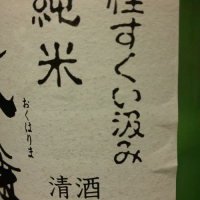 すくい汲み
純米
清酒
おくはりま